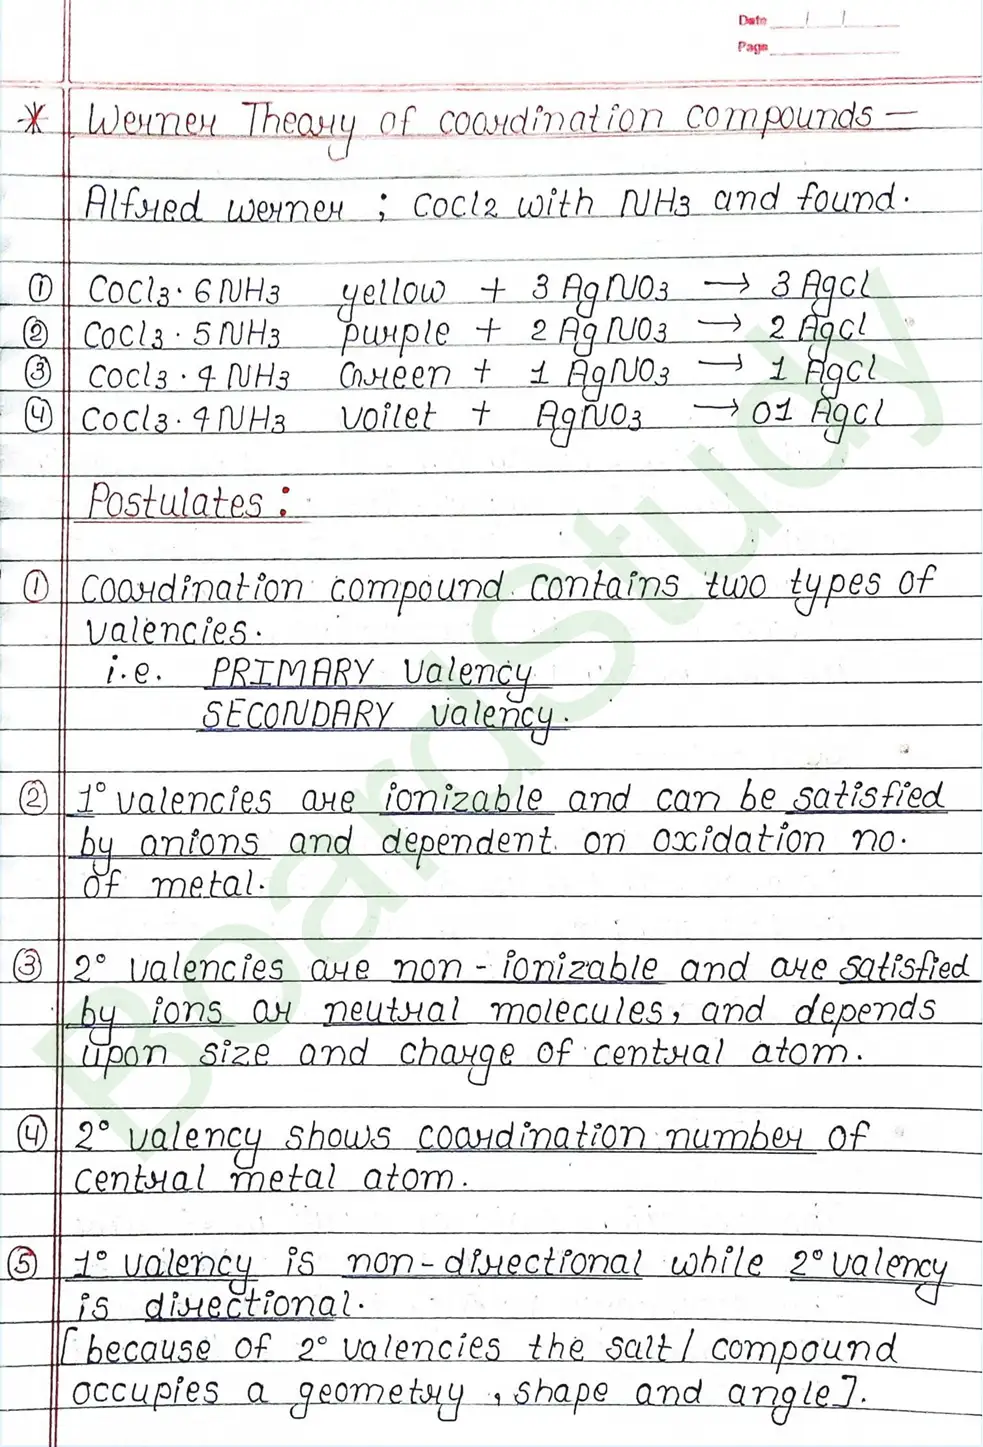 Date / /
Page
* Werner Theory of coordination compounds –
Alfred werner ; COCl2 with NH3 and found.
① COCl3 · 6NH3 yellow + 3 AgNO3 → 3 Agcl
② COCl3 · 5NH3 purple + 2 AgNO3 → 2 Agcl
③ COCl3 · 4NH3 Green + 1 AgNO3 → 1 Agcl
④ COCl3 · 4NH3 voilet + AgNO3 → 01 Agcl
Postulates :
① Coordination compound contains two types of
valencies.
i.e. PRIMARY valency
SECONDARY valency.
② 1° valencies are ionizable and can be satisfied
by anions and dependent on oxidation no.
of metal.
③ 2° valencies are non-ionizable and are satisfied
by ions or neutral molecules, and depends
upon size and charge of central atom.
④ 2° valency shows coordination number of
central metal atom.
⑤ 1° valency is non-directional while 2° valency
is directional.
[because of 2° valencies the salt/compound
occupies a geometry, shape and angle].
BoardStudy